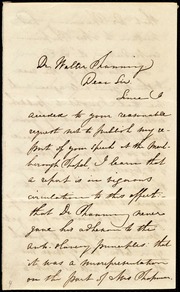 Dr Walter Channing
Dear Sir,
Since I
acceded to your reasonable
request not to publish my re-
port of your speech at the Marl-
borough Chapel, I learn that
a report is in vigorous
circulation to this effect.
that Dr Channing never
gave his adhesion to the
anti-slavery principles that it
was a misrepresentation
on the part of Mrs Chapman